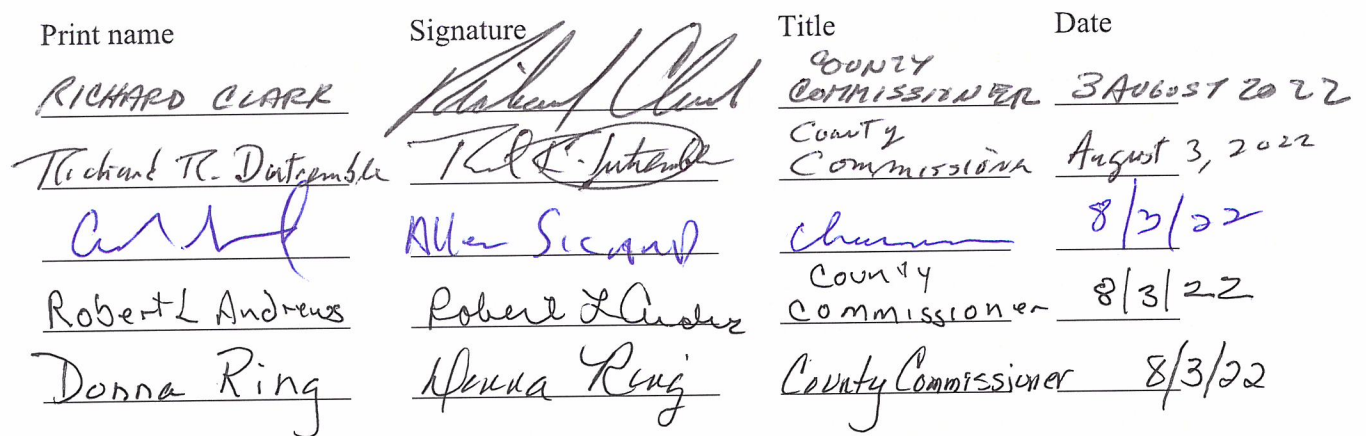 Print name Signature Title Date
RICHARD CLARK Richard Clark COUNTY COMMISSIONER 3 AUGUST 2022
Richard R. Dutremble County Commissioner August 3, 2022
Allen Sicard Chairman 8/3/22
Robert L Andrews Robert L Andrews County Commissioner 8/3/22
Donna Ring Donna Ring County Commissioner 8/3/22